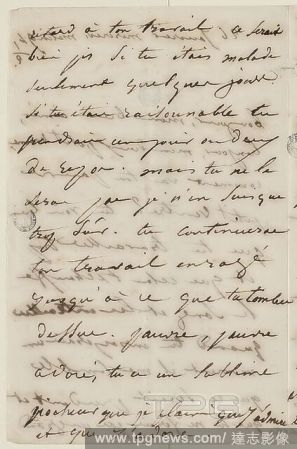 retard à ton travail ce serait
bien pis si tu étais malade
seulement quelques jours.
si tu étais raisonnable tu
prendrais un jour ou deux
de repos. mais tu ne le
feras pas je n'en suis que
trop sûr. tu continueras
ton travail enragé
jusqu'à ce que tu tombes
dessus. pauvre, pauvre
adoré, tu es un sublime
piocheur que j'admire
et que j'adore
TPG
www.tpgnews.com/ 達志影像